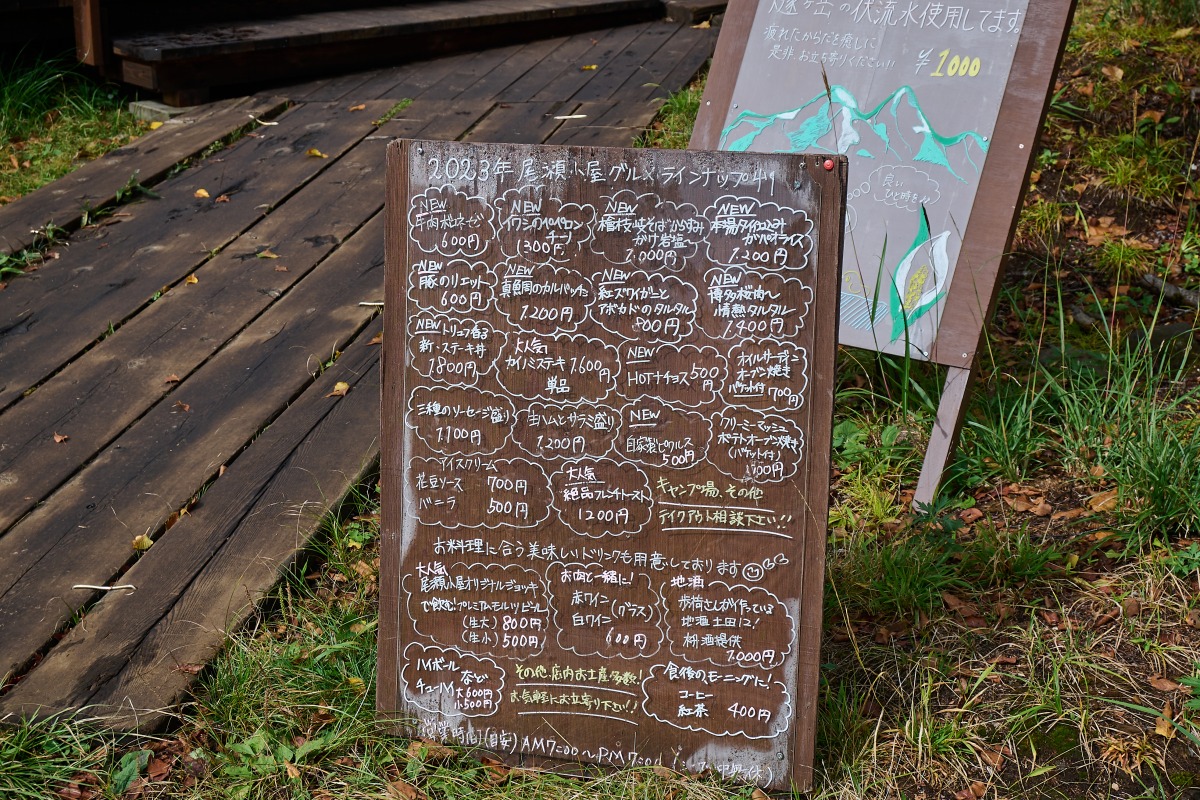 の伏流水使用してます。
疲れたからだを癒しに
是非、お立ち寄りください!!
¥1000
良い
ひと時を!!
2023年 尾瀬小屋グルメ ラインナップ
NEW
牛肉ボロネーゼ
600円
NEW
イワシのペペロン
チーノ
1300円
NEW
からすみ
がけ岩塩
1.000円
NEW
本場タイ
ガパオライス
1.200円
NEW
豚のリエット
600円
NEW
真鯛のカルパッチョ
1.200円
NEW
紅ズワイガニと
アボカドのタルタル
800円
NEW
博多桜肉〜
情熱タルタル
1.400円
NEW トリュフ香る
新・ステーキ丼
1800円
大人気
カイノミステーキ 1.600円
単品
NEW
HOTナチョス 500円
オイルサーディン
オーブン焼き
バケット付 700円
三種のソーセージ盛り
1.100円
生ハムとサラミ盛り
1.200円
NEW
自家製ピクルス
500円
クリーミーマッシュ
ポテトオーブン焼き
(バケット付)
アイスクリーム
花豆ソース 700円
バニラ 500円
大人気
絶品フレンチトースト
1200円
キャンプ場、その他
テイクアウト相談下さい!!
お料理に合う美味しいドリンクも用意しております
大人気
尾瀬小屋オリジナルジョッキ
で飲む!プレミアムモルツビール
(生大) 800円
(生小) 500円
お肉と一緒に!
赤ワイン
白ワイン
(グラス)
600円
地酒
歩荷さんが作っている
地酒 土田に!
枡酒提供
1.000円
ハイボール
大600円
小500円
その他、店内お土産多数!
お気軽にお立寄り下さい!!
食後のモーニングに!
コーヒー
紅茶 400円
営業時間(目安) AM7:00〜PM7:00